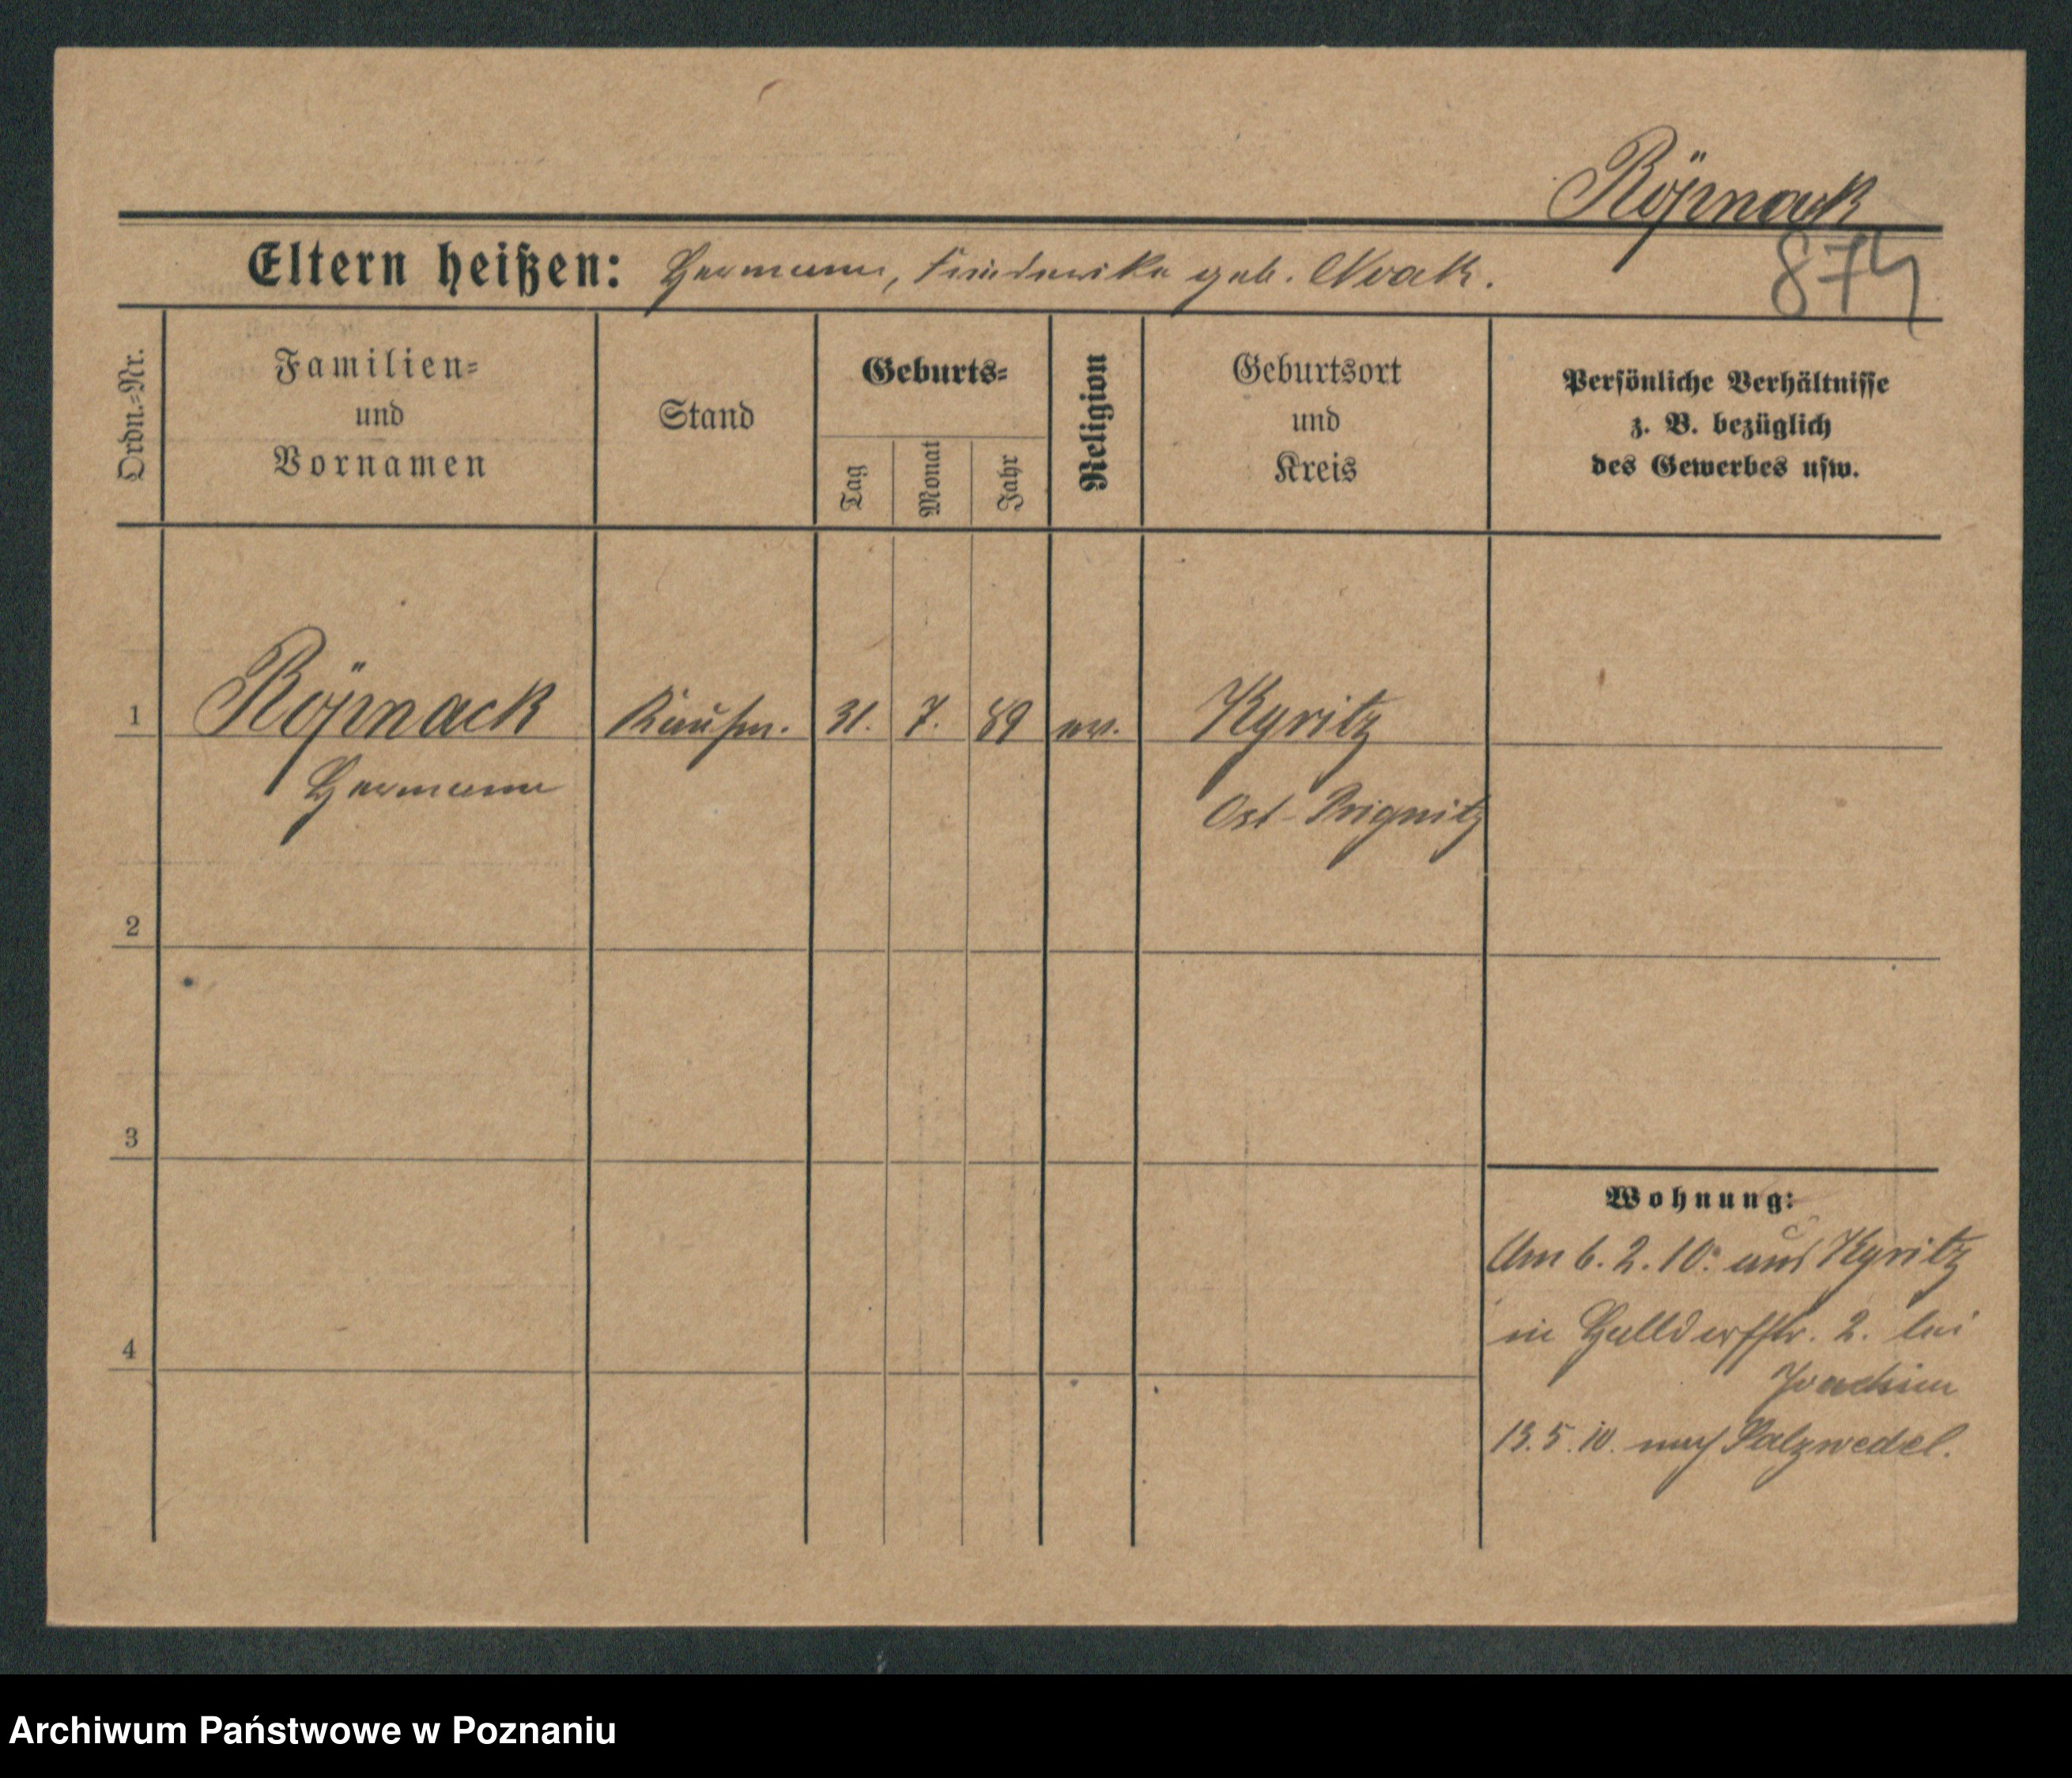 Röpnack
Eltern heißen: Hermann, Friederike geb. Noak.
874
Ordn.-Nr.
Familien-
und
Vornamen
Stand
Geburts-
Tag
Monat
Jahr
Religion
Geburtsort
und
Kreis
Persönliche Verhältnisse
z. B. bezüglich
des Gewerbes usw.
1 Röpnack Kaufm. 31. 7. 89 ev. Kyritz
Hermann Ost-Prignitz
2
3
4
Wohnung:
Am 6.2.10. aus Kyritz
in Halldorfstr. 2. bei
Joachim
13.5.10. nach Salzwedel.
Archiwum Państwowe w Poznaniu